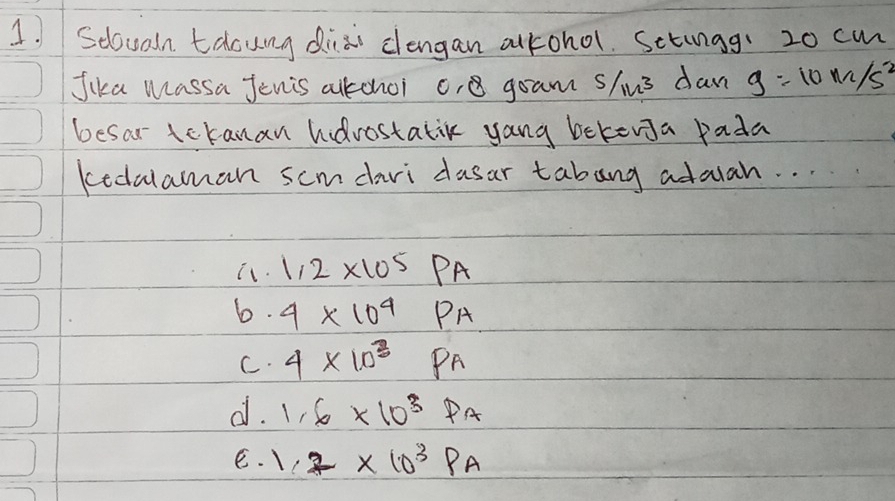 1. Sebuah tabung diisi dengan alkohol. Setinggi 20 cm
Jika massa Jenis alkohol 0,8 gram s/m³ dan g = 10 m/s²
besar tekanan hidrostatik yang bekerja pada
kedalaman 5cm dari dasar tabung adalah .....
a. 1,2 x 10⁵ PA
b. 4 x 10⁴ PA
c. 4 x 10³ PA
d. 1,6 x 10³ PA
e. 1,2 x 10³ PA